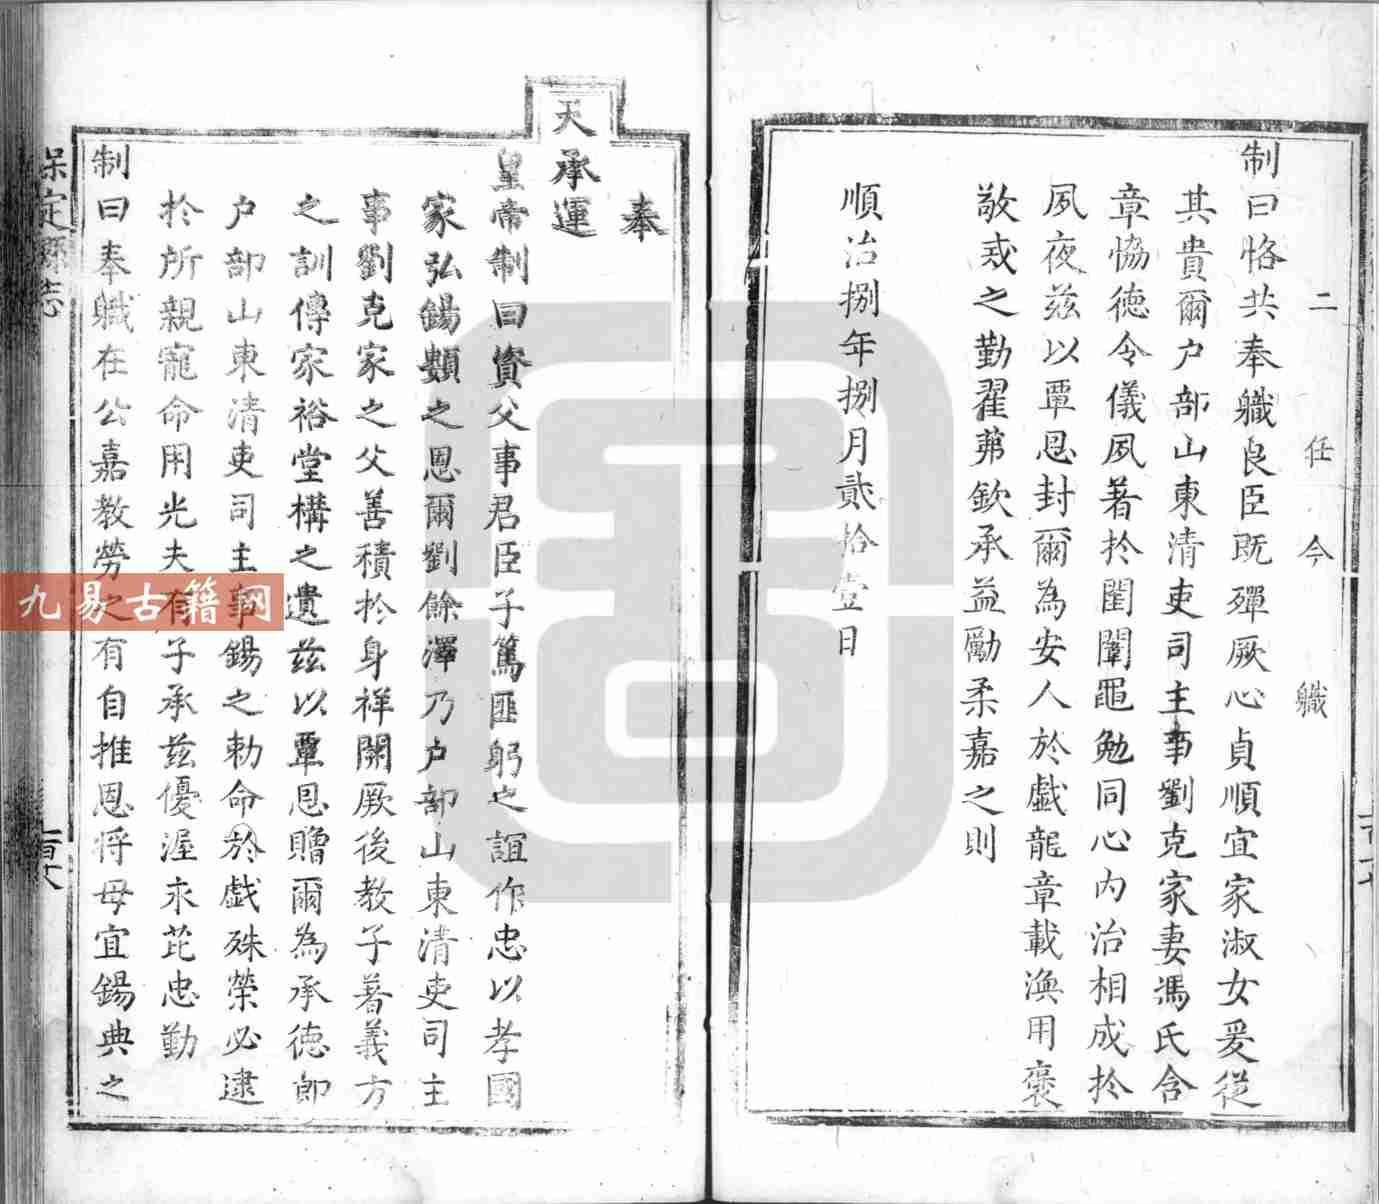 二任今職
制曰恪共奉職良臣既殫厥心貞順宜家淑女爰從
其貴爾户部山東清吏司主事劉克家妻馮氏含
章恊德令儀夙著扵閨闈黽勉同心内治相成扵
夙夜茲以覃恩封爾為安人於戯龍章載渙用褒
敬戒之勤翟茀欽承益勵柔嘉之則
順治捌年捌月貳拾壹日
奉
天承運
皇帝制曰資父事君臣子篤匪躬之誼作忠以孝國
家弘錫類之恩爾劉餘澤乃户部山東清吏司主
事劉克家之父善積扵身祥開厥後教子著義方
之訓傳家裕堂構之遺茲以覃恩贈爾為承德郎
户部山東清吏司主事錫之勅命於戯殊榮必逮
扵所親寵命用光夫有子承茲優渥永芘忠勤
制曰奉職在公嘉教勞之有自推恩将母宜錫典之
保定縣志
九易古籍网